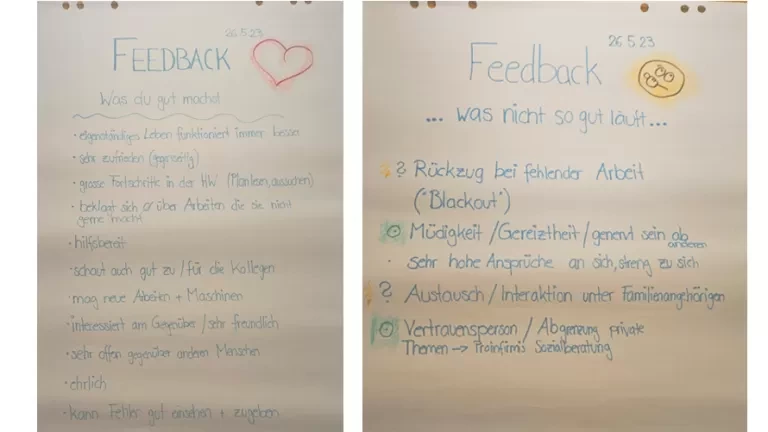 26.5.23
FEEDBACK
Was du gut machst
· eigenständiges Leben funktioniert immer besser
· sehr zufrieden (gegenseitig)
· grosse Fortschritte in der HW
· beklagt sich über Arbeiten die sie nicht
gerne macht
· hilfsbereit
· schaut auch gut zu / für die Kollegen
· mag neue Arbeiten + Maschinen
· interessiert am Gegenüber / sehr freundlich
· sehr offen gegenüber anderen Menschen
· ehrlich
· kann Fehler gut ansehen + zugeben
26.5.23
Feedback
... was nicht so gut läuft...
? Rückzug bei fehlender Arbeit
("Blackout")
Müdigkeit / Gereiztheit / genervt sein ab
anderen
· sehr hohe Ansprüche an sich, streng zu sich
? Austausch / Interaktion unter Familienangehörigen
Vertrauensperson / Abgrenzung private
Themen → Proinfirmis Sozialberatung